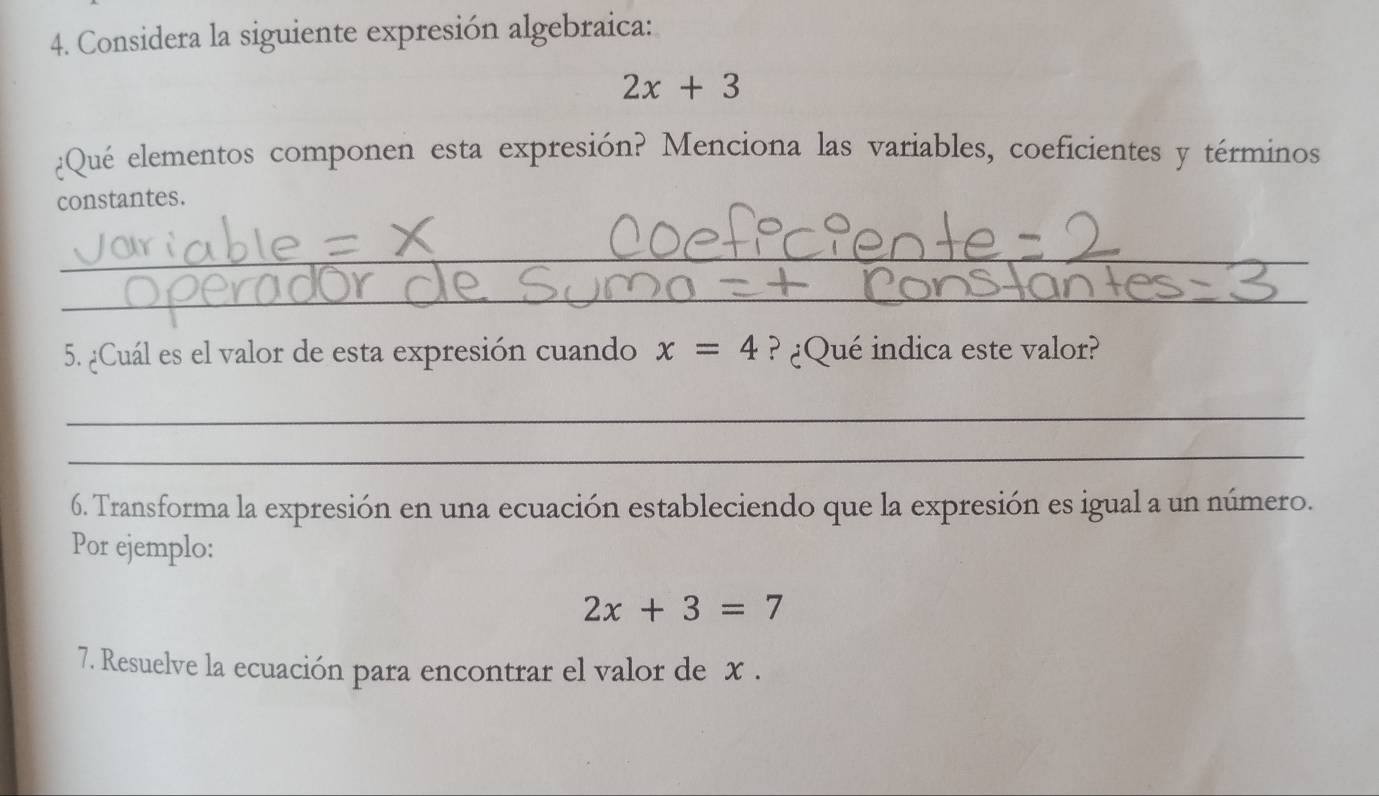 4. Considera la siguiente expresión algebraica:
2x + 3
¿Qué elementos componen esta expresión? Menciona las variables, coeficientes y términos
constantes.
variable = x coeficiente = 2
operador de suma = + constantes = 3
5. ¿Cuál es el valor de esta expresión cuando x = 4 ? ¿Qué indica este valor?
6. Transforma la expresión en una ecuación estableciendo que la expresión es igual a un número.
Por ejemplo:
2x + 3 = 7
7. Resuelve la ecuación para encontrar el valor de x .